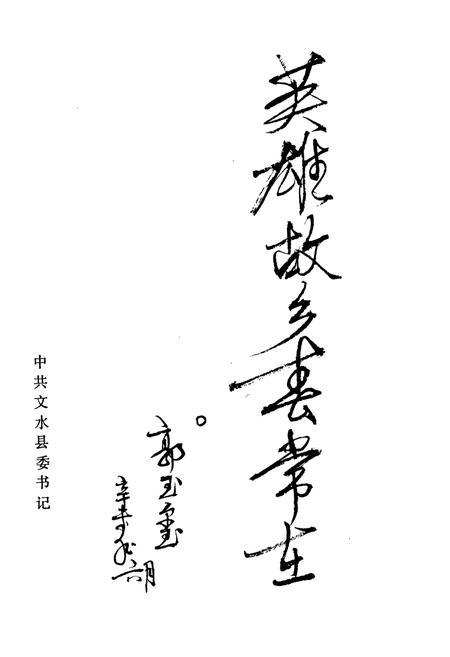 英雄故乡春常在
郭玉
辛未六月
中共文水县委书记